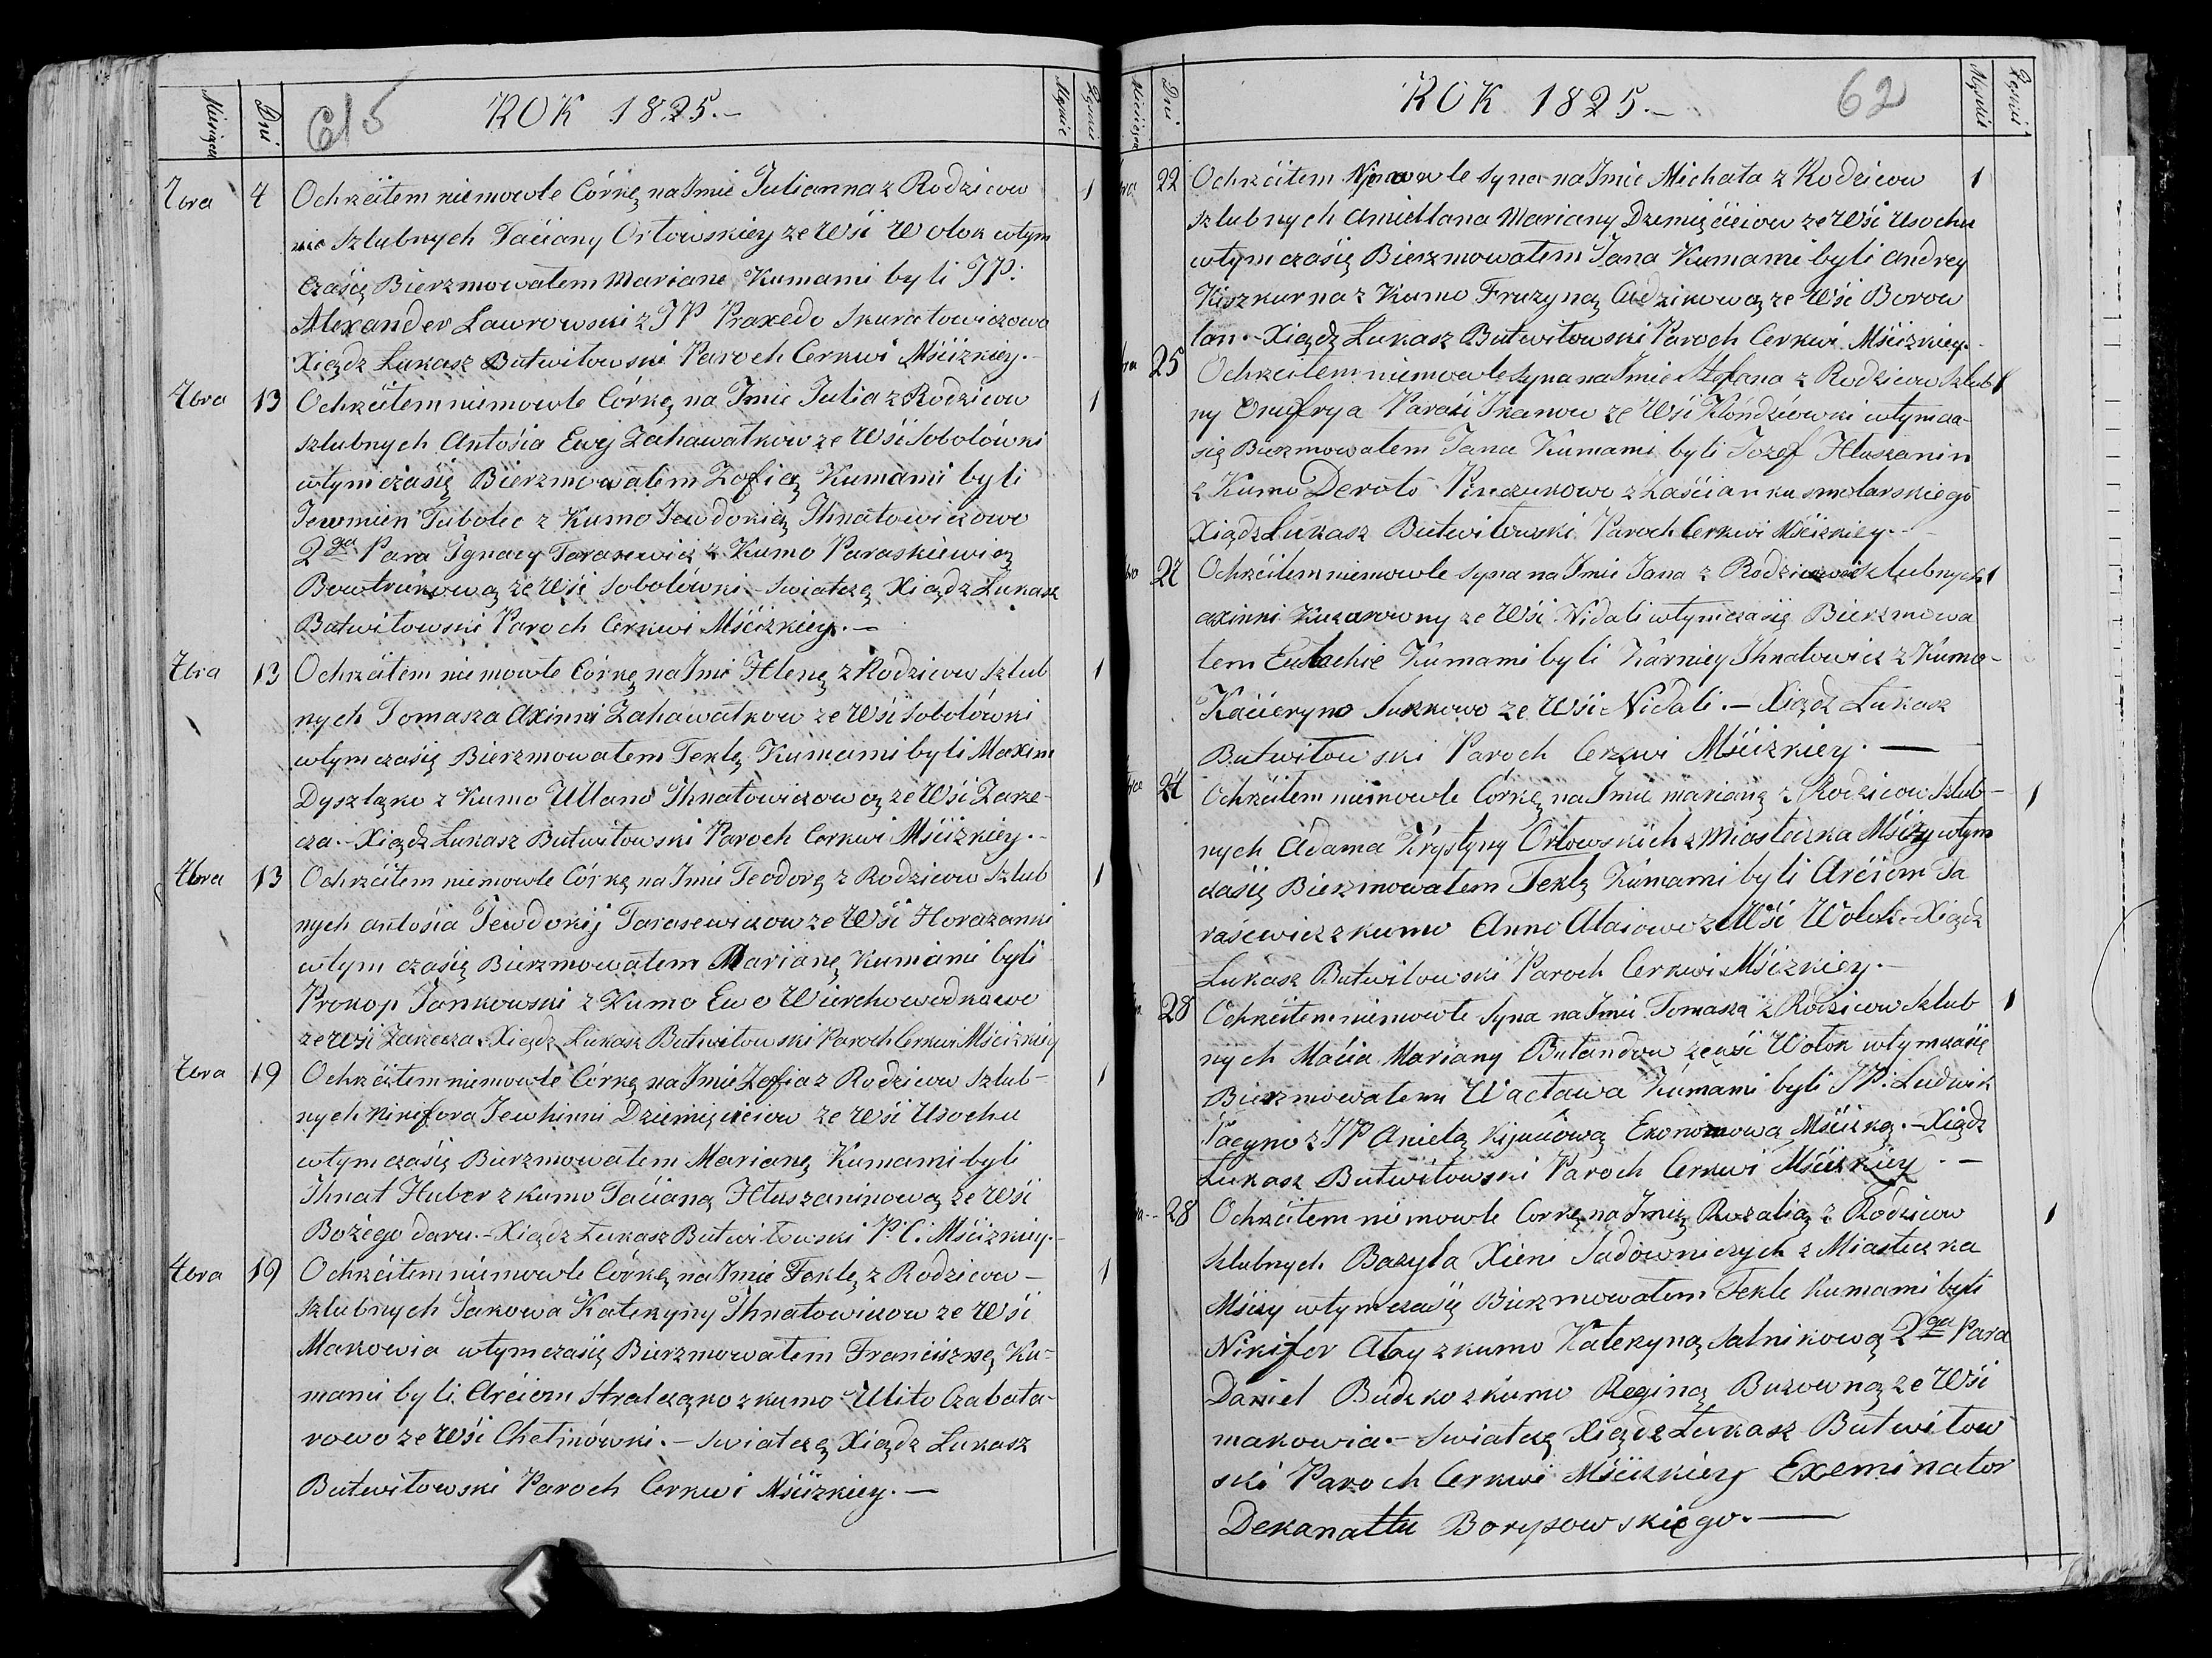 Miesiąca Dni 615 ROK 1825.- Męzkie Żęnskie
7bra 4 Ochrzcitem niemowle Córkę na Imie Julianna z Rodzicow 1
nie szlubnych Taciany Ortowskiey ze Wśi Wolok wtym
czaśię Bierzmowatem Mariane Kumami byli JP:
Alexander Lawrowski z JP Praxedo Skuratowiczowa
Xiądz Lukasz Butwitowski Paroch Cerkwi Mśćizkiey.-
7bra 13 Ochrzcitem niemowle Córkę na Imie Julia z Rodzicow 1
szlubnych Antośia Ewy Zahawatkow ze Wśi Sobolówki
wtym czaśię Bierzmowatem Zofią Kumami byli
Jewmien Tubolec z Kumo Jewdokią Ihnatowiczowo
2ga Para Ignacy Tarasewicz z Kumo Paraskiewią
Bowtrukową ze Wśi Sobolówki - Swiatczę Xiądz Lukasz
Butwitowski Paroch Cerkwi Mśćizkiey.-
7bra 13 Ochrzcitem niemowle Córkę na Imie Helenę z Rodzicow szlub 1
nych Tomasza Axinni Zahawatkow ze Wśi Sobolówki
wtym czaśię Bierzmowatem Teklę Kumami byli Maxim
Dyszląko z Kumo Ullano Ihnatowiczową ze Wśi Zarze-
cza.- Xiądz Lukasz Butwitowski Paroch Cerkwi Mśćizkiey.-
7bra 13 Ochrzcitem niemowle Córkę na Imie Teodorę z Rodzicow szlub 1
nych antośia Jewdokij Tarasewiczow ze Wśi Horazanki
wtym czaśię Bierzmowatem Marianę Kumami byli
Prokop Jankowski z Kumo Ewo Wierchowodkowo
ze Wśi Zarzecza. Xiądz Lukasz Butwitowski Paroch Cerkwi Mśćizkiey
7bra 19 Ochrzcitem niemowle Córkę na Imie Zofia z Rodzicow szlub- 1
nych Nikifora Jewhinni Dziemięciciow ze Wśi Usochu
wtym czaśię Bierzmowatem Marianę Kumami byli
Ihnat Huber z kumo Tacianą Hluszaninową ze Wśi
Bożego daru.- Xiądz Lukasz Butwitowski P: C: Mśćizkiey.-
7bra 19 Ochrzcitem niemowle Córkę na Imie Teklę z Rodzicow - 1
szlubnych Jakowa Katerzyny Ihnatowiczow ze Wśi
Makowia wtym czaśię Bierzmowatem Franciszkę Ku-
mami byli Arciom Stralczako z kumo Ulito Czabata-
rowo ze Wśi Chetinówki.- Swiatczę Xiądz Lukasz
Butwitowski Paroch Cerkwi Mśćizkiey.-
Miesiąca Dni ROK 1825.- 62 Męzkie Żęnskie
bra 22 Ochrzcitem Niemowle syna na Imie Michata z Rodzicow 1
szlubnych Amiellana Mariany Dzemięciciow ze Wśi Usochu
wtym czaśię Bierzmowatem Jana Kumami byli andrey
Kiszkurna z Kumo Fruzyną Cudzikową ze Wśi Borow
lan.- Xiądz Lukasz Butwitowski Paroch Cerkwi Mśćizkiey.-
bra 25 Ochrzcitem niemowle syna na Imie Stefana z Rodzicow szlub 1
ny Onufrya Paraśi Ikanow ze Wśi Hłóndziówki wtym cza-
się Bierzmowatem Jana Kumami byli Jozef Hluszanin
z Kumo Deroto Pinczukowo z Zaśćianku smolarskiego
Xiądz Lukasz Butwitowski Paroch Cerkwi Mśćizkiey.-
bra 27 Ochrzcitem niemowle syna na Imie Jana z Rodzicow nieszlubnych 1
axinni Kuzarowny ze Wśi Nidali wtym czaśię Bierzmowa
tem Eustachie Kumami byli Karniey Ihnatowicz z Kumo-
Kacieryno Sukkowo ze Wśi Nidali.- Xiądz Lukasz
Butwitowski Paroch Cerkwi Mśćizkiey.-
bra 27 Ochrzcitem niemowle Córkę na Imie marianę z Rodzicow szlub- 1
nych Adama Krystyny Ortowskich z Miasteczka Mśćiży wtym
czaśię Bierzmowatem Teklę Kumami byli Arciom Ta
raśewicz z kumo Anno Ataiowo ze Wśi Wolok.- Xiądz
Lukasz Butwitowski Paroch Cerkwi Mśćizkiey.-
28 Ochrzcitem niemowle Syna na Imie Tomasza z Rodzicow szlub 1
nych Maćia Mariany Butandow ze wśi Wołok wtym czaśię
Bierzmowatem Wactawa Kumami byli JP: Ludwik
Pacyno z JP Anielą Kijuciową Ekonomową Mśćizką.- Xiądz
Lukasz Butwitowski Paroch Cerkwi Mśćizkiey.-
28 Ochrzcitem niemowle Corkę na Imię Rozalią z Rodzicow 1
szlubnych Bazyla Xieni Sadowniczych z Miasteczka
Mśćiży wtym czaśię Bierzmowatem Tekle Kumami byli
Nikifor Ataj z kumo Katerzyną Salnikową 2ga Para
Daniel Budzko z kumo Reginą Buzowną ze Wśi
makowia.- Swiatczę Xiądz Łukasz Butwitow
ski Paroch Cerkwi Mśćizkiey Exeminator
Dekanattu Borysowskiego.-